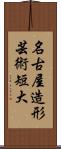 名古屋造形
芸術短大